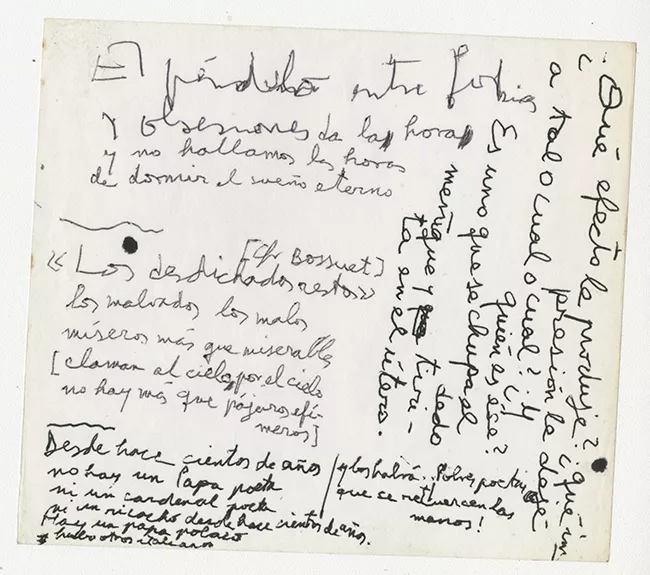 El péndulo entre fobias
y obsesiones da la hora
y no hallamos las horas
de dormir el sueño eterno
[Cfr Bossuet]
« Los desdichados restos »
los malvados los malos
míseros más que miserables
[claman al cielo, por el cielo
no hay más que pájaros efí-
meros]
Desde hace cientos de años
no hay un Papa poeta
ni un cardenal poeta
ni un ricacho desde hace cientos de años.
Hay un papa polaco
* hubo otros italianos
y los habrá. Pobres poetas
que se retuercen las
manos!
¿Qué efecto le produje? ¿qué im
presión le dejé
a tal o cual o cual? ¿Y
quién es ése?
Es uno que se chupa el
dedo
meñique y
tiri-
ta en el útero.